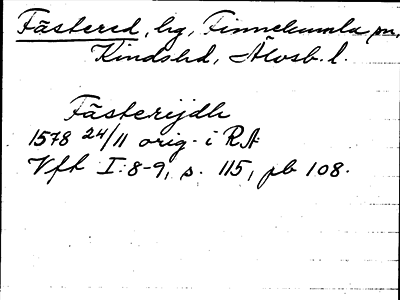 Fästered, hg, Finnekumla sn,
Kindshd, Älvsb. l.
Fästerijdh
1578 24/11 orig. i RA
Vft I: 8-9, s. 115, pb 108.